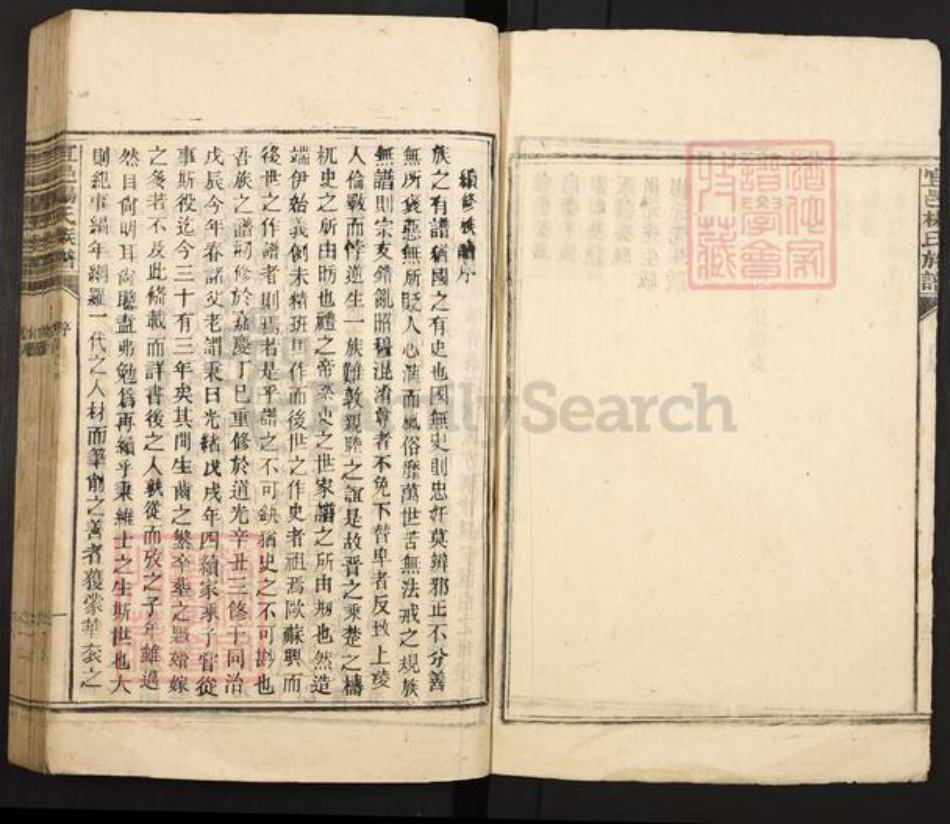 宜邑楊氏族譜
續修族譜序
族之有譜猶國之有史也國無史則忠奸莫辨邪正不分善
無所褒惡無所貶人心漓而風俗靡萬世苦無法戒之規族
無譜則宗支錯亂昭穆混淆尊者不免下替卑者反致上凌
人倫斁而悖逆生一族難敦親睦之誼是故晋之乘楚之檮
杌史之所由昉也禮之帝系史之世家譜之所由刱也然造
端伊始義例未精班馬作而後世之作史者祖焉歐蘇興而
後世之作譜者則焉者是乎譜之不可缺猶史之不可尠也
吾族之譜刱修於嘉慶丁巳重修於道光辛丑三修于同治
戊辰今年春諸父老謂秉曰光緒戊戌年四續家乘子曾從
事斯役迄今三十有三年矣其間生齒之繁卒塟之愆婚嫁
之多若不及此修載而詳書後之人孰從而攷之子年雖邁
然目尚明耳尚聰盍弗勉爲再續乎秉維士之生斯世也大
則紀事編年網羅一代之人材而筆削之善者獲蒙華袞之
宜邑楊氏族譜
序
譜學會
收藏
FamilySearch